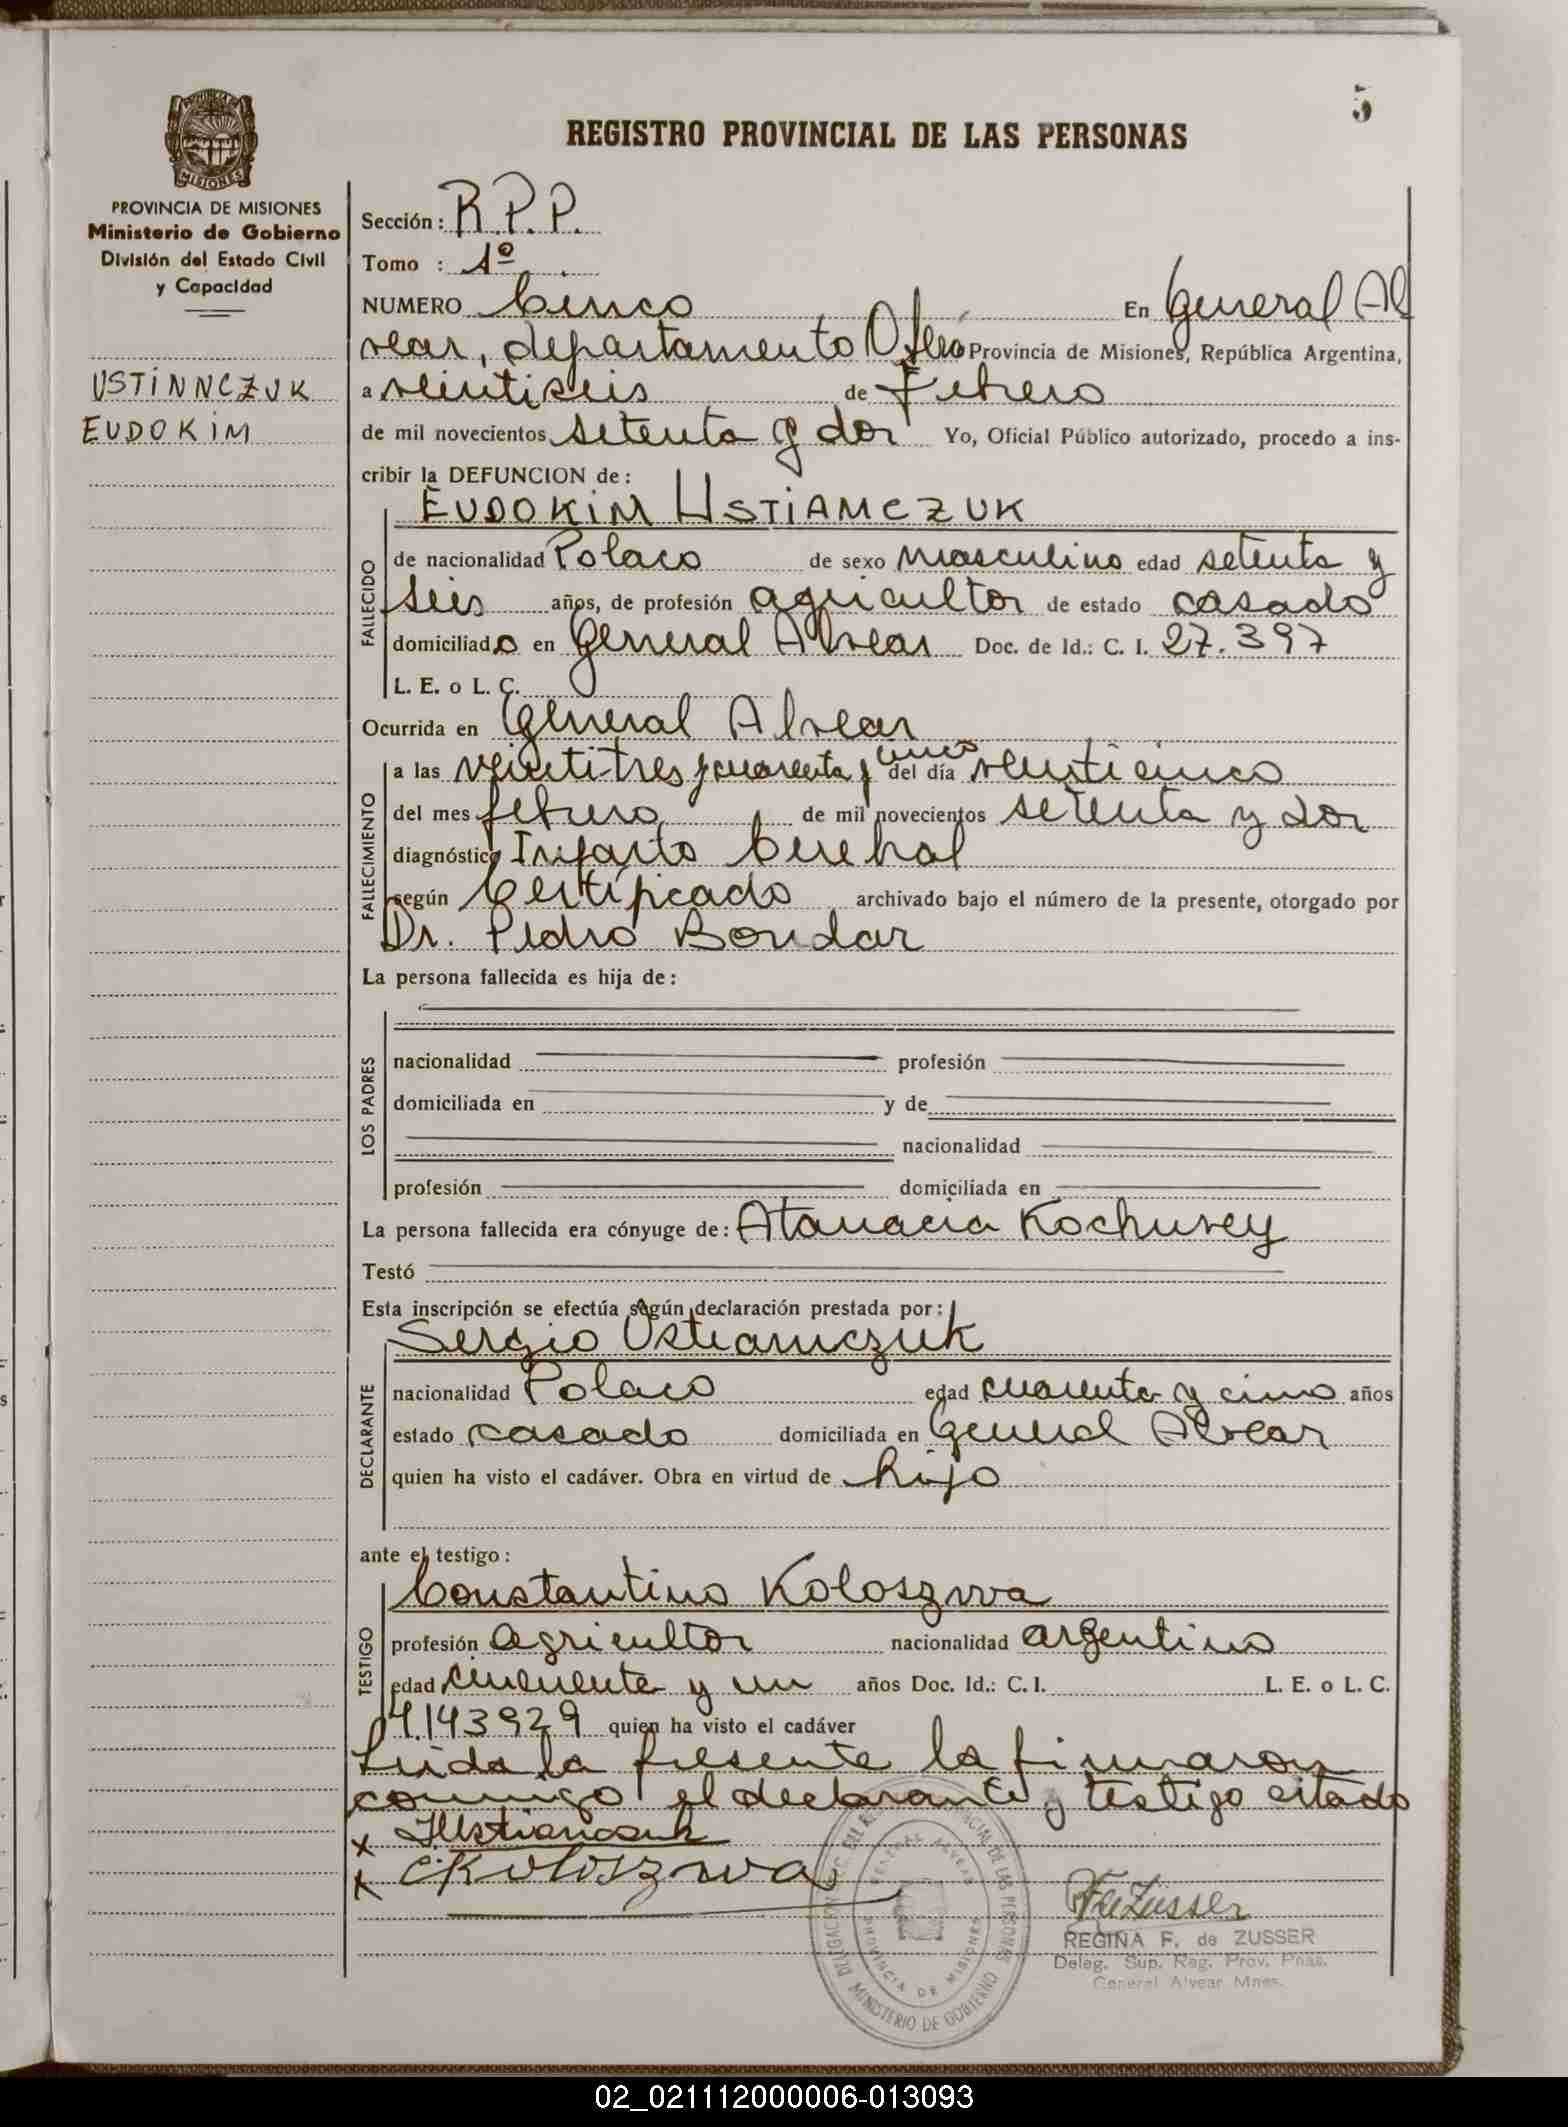 5
REGISTRO PROVINCIAL DE LAS PERSONAS
PROVINCIA DE MISIONES
MISIONES
PROVINCIA DE MISIONES
Ministerio de Gobierno
División del Estado Civil
y Capacidad
USTINNCZUK
EUDOKIM
Sección: R.P.P.
Tomo : 1º
NUMERO Cinco En General Al
vear, departamento Oberá Provincia de Misiones, República Argentina,
a veintiseis de Febrero
de mil novecientos setenta y dos Yo, Oficial Público autorizado, procedo a ins-
cribir la DEFUNCION de:
EUDOKIM USTIAMCZUK
FALLECIDO
de nacionalidad Polaco de sexo masculino edad setenta y
seis años, de profesión agricultor de estado casado
domiciliado en General Alvear Doc. de Id.: C. I. 27.397
L. E. o L. C.
Ocurrida en General Alvear
FALLECIMIENTO
a las veintitres y cuarenta y cinco del día veinticinco
del mes febrero de mil novecientos setenta y dos
diagnóstico Infarto Cerebral
según Certificado archivado bajo el número de la presente, otorgado por
Dr. Pedro Bondar
La persona fallecida es hija de:
LOS PADRES
nacionalidad profesión
domiciliada en y de
nacionalidad
profesión domiciliada en
La persona fallecida era cónyuge de: Atanacia Kochurey
Testó
Esta inscripción se efectúa según declaración prestada por:
Sergio Ustiamczuk
DECLARANTE
nacionalidad Polaco edad cuarenta y cinco años
estado casado domiciliada en General Alvear
quien ha visto el cadáver. Obra en virtud de hijo
ante el testigo:
Constantino Koloszwa
TESTIGO
profesión agricultor nacionalidad argentino
edad cincuenta y un años Doc. Id.: C. I. L. E. o L. C.
4.143929 quien ha visto el cadáver
Leida la presente la firmaron
conmigo el declarante y testigo citado
x
x CKoloszwa
GENERAL ALVEAR
PROVINCIA DE MISIONES
MINISTERIO DE GOBIERNO
REGINA F. de ZUSSER
Deleg. Sup. Reg. Prov. Pnas.
General Alvear Mnes.
02_021112000006-013093